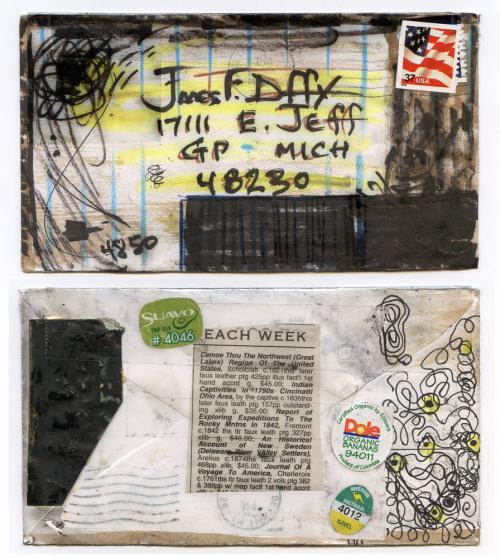 37 USA
James F. Duffy
17111 E. JEFF
GP MICH
48230
4850
SUAVO
EMP 059
# 4046
EACH WEEK
Canoe Thru The Northwest (Great
Lakes) Region Of The United
States, Scholcrah c.1821ths later
faux leather ptg 425pp illus facf'l 1st
hand accnt g, $45.00; Indian
Captivities In 1790s Cincinatti
Ohio Area, by the captive c.1835ths
later faux leath ptg 157pp outstand-
ing xlib g, $35.00; Report of
Exploring Expeditions To The
Rocky Mntns In 1842, Fremont
c.1842 ths ltr faux leath ptg 327pp
xlib g, $48.00; An Historical
Account of New Sweden
(Delaware River VAlley Settlers),
Arelius c.1874ths leath ptg
468pp xlib, $45.00; Journal Of A
Voyage To America, Charleroix
c.1761ths ltr faux leath 2 vols ptg 382
& 388pp w/ map facfl 1st hand accnt
Certified Organic by Ecocert
Dole
ORGANIC
BANANAS
94011
Product of Colombia
RIVERSUN
AUSTRALIA
4012
NAVEL